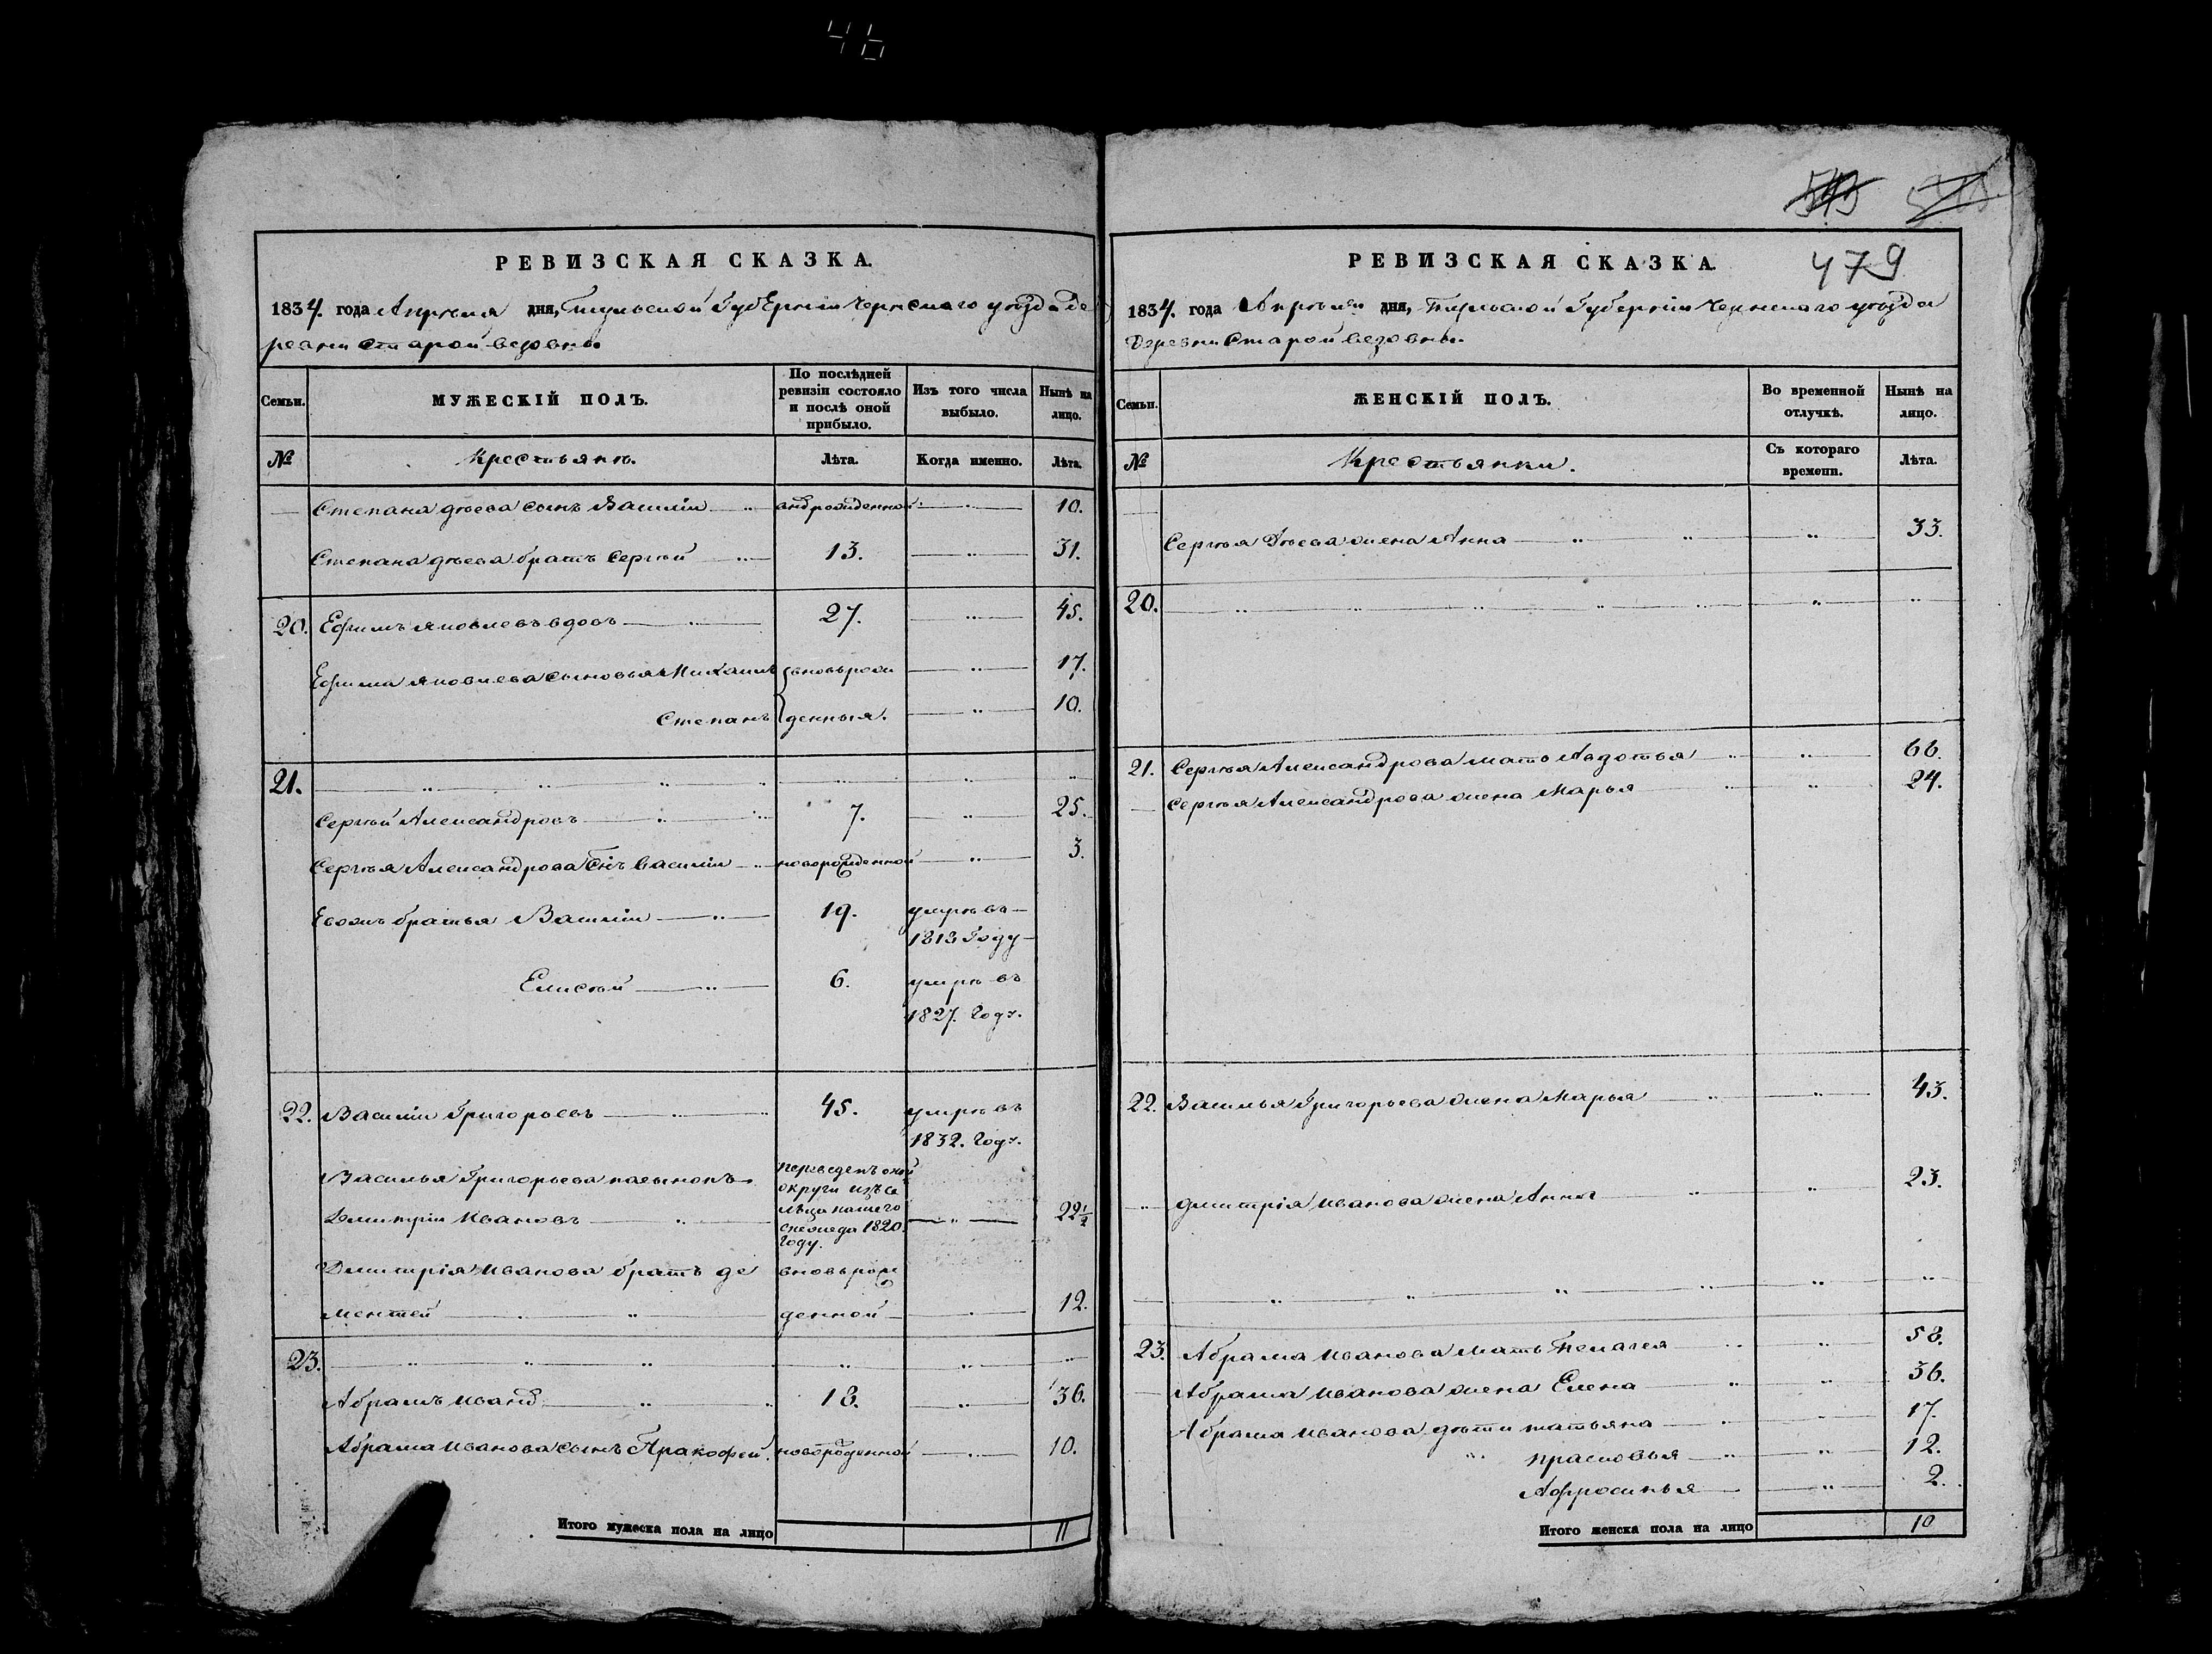 46
РЕВИЗСКАЯ СКАЗКА.
1834. года Апреля дня, Тульской Губернiи Чернскаго уезда де
ревни Старой
Семьи.
МУЖЕСКIЙ ПОЛЪ.
По послѣдней ревизiи состояло и послѣ оной прибыло.
Изъ того числа выбыло.
Нынѣ на лицо.
№
Крестьяне.
Лѣта.
Когда именно.
Лѣта.
Степана сынъ Василiи 10.
Степана братъ Сергѣй 13. 31.
20. Ефимъ Яковлевъ вдовъ 27. 45.
Ефима Яковлева сыновья Михаилъ вновьрож 17.
Степанъ денныя. 10.
21.
Сергѣй Александровъ 7. 25.
Сергѣя Александрова Василiи новорожденной 3.
братья Василiи 19. умре въ
Году
Елисѣй 6. умре въ
1827. Году.
22. Василiи Григорьевъ 45. умре въ
1832. Году.
Василья Григорьева пасынокъ
переведенъ
округи изъ се
Дмитрiи Ивановъ 22½
1820.
году.
Дмитрiя Иванова братъ де вновьрож
ментей денной 12.
23.
Абрамъ Иванов 18. 36.
Абрама Иванова сынъ Пракофей. новорожденной 10.
Итого мужеска пола на лицо 11
479
РЕВИЗСКАЯ СКАЗКА.
1834. года Апреля дня, Тульской Губернiи Чернскаго уезда
Деревни Старой
Семьи.
ЖЕНСКIЙ ПОЛЪ.
Во временной отлучкѣ.
Нынѣ на лицо.
№
Крестьянки.
Съ котораго времени.
Лѣта.
Сергѣя жена Анна 33.
20.
21. Сергѣя Александрова мать Авдотья 66.
Сергѣя Александрова жена Марья 24.
22. Василья Григорьева жена Марья 43.
Дмитрiя Иванова жена Анна 23.
23. Абрама Иванова мать Пелагея 58.
Абрама Иванова жена Елена 36.
Абрама Иванова дѣти татьяна 17.
прасковья 12.
Афросинья 2.
Итого женска пола на лицо 10